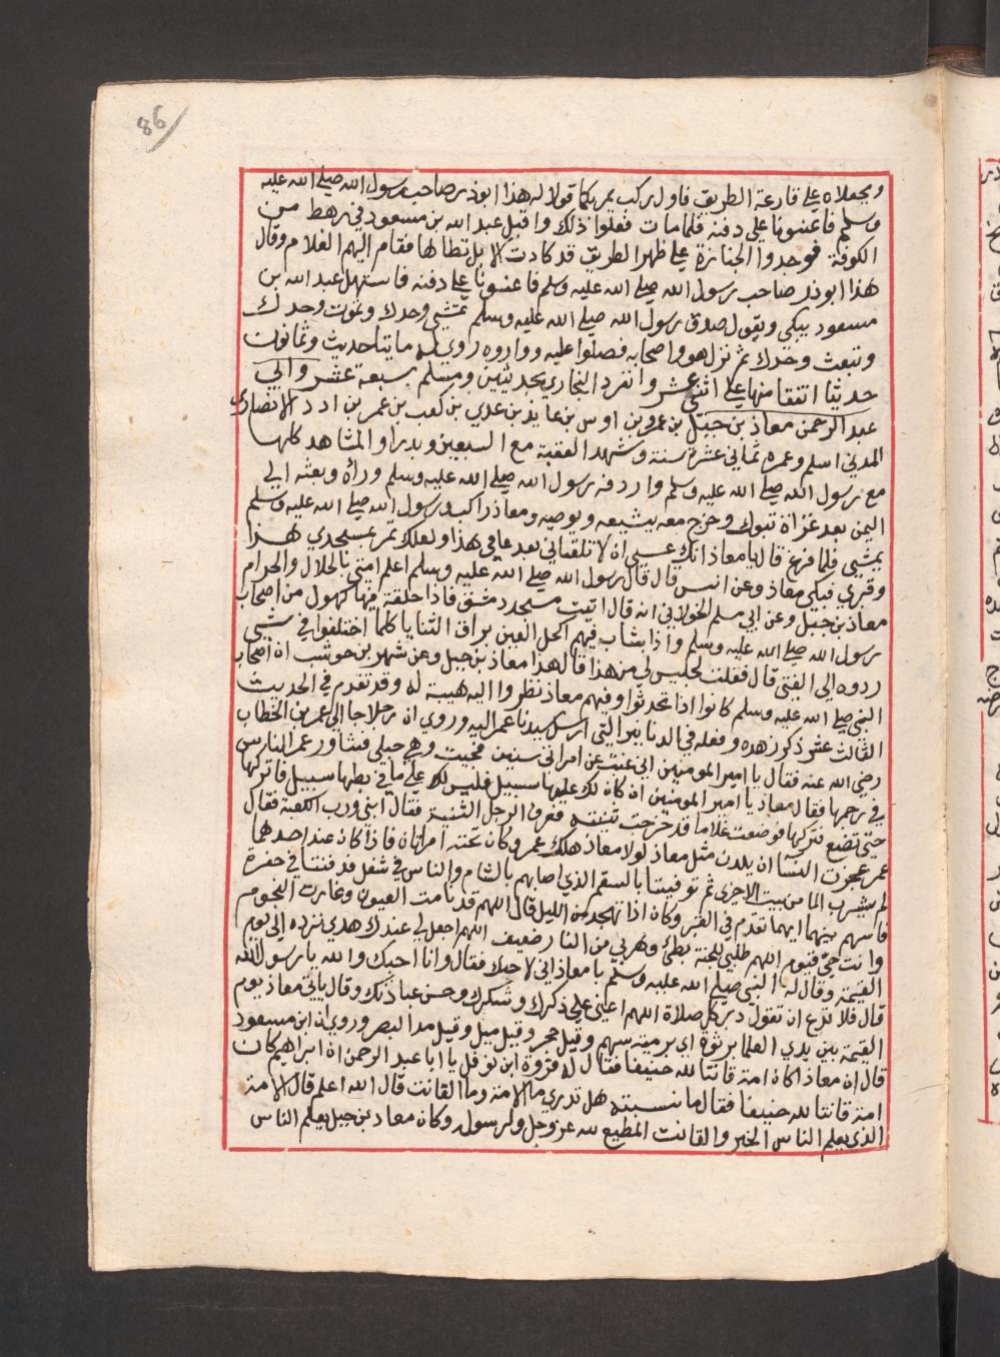 86
ويجعلاه علي قارعة الطريق فاول ركب يمر بكما قولا له هذا ابوذر صاحب رسول الله صلي الله عليه
وسلم فاعينونا علي دفنه فلما مات فعلوا ذلك واقبل عبد الله بن مسعود في رهط من
الكوفة فوجدوا الجنازة علي ظهر الطريق قد كادت الابل تطاها فقام اليهم الغلام وقال
هذا ابوذر صاحب رسول الله صلي الله عليه وسلم فاعينونا علي دفنه فاستهل عبد الله بن
مسعود يبكي ويقول صدق رسول الله صلي الله عليه وسلم تمشي وحدك وتموت وحدك
وتبعث وحدك ثم نزل هو واصحابه فصلوا عليه وواروه روي له ماتتا حديث وثمانون
حديثا اتفقا منها علي اثني عشر وانفرد البخاري بحديثين ومسلم بسبعة عشر وابي
عبد الرحمن معاذ بن جبل بن عمرو بن اوس بن عايذ بن عدي بن كعب بن عمر بن ادد الانصاري
المدني اسلم وعمره ثماني عشرة سنة وشهد العقبة مع السبعين وبدرا والمشاهد كلها
مع رسول الله صلي الله عليه وسلم واردفه رسول الله صلي الله عليه وسلم وراه وبعثه الي
اليمن بعد غزاة تبوك وخرج معه يشيعه ويوصيه ومعاذ راكب ورسول الله صلي الله عليه وسلم
يمشي فلما فرغ قال يا معاذ انك عسي ان لا تلقاني بعد عامي هذا ولعلك تمر بمسجدي هذا
وقبري فبكي معاذ وعن انس قال قال رسول الله صلي الله عليه وسلم اعلم امتي بالحلال والحرام
معاذ بن جبل وعن ابي مسلم الخولاني انه قال اتيت مسجد دمشق فاذا حلقة فيها كهول من اصحاب
رسول الله صلي الله عليه وسلم واذا بشاب فيهم اكحل العين براق الثنايا كلما اختلفوا في شيي
ردوه الي الفتي قال فقلت لجليس لي من هذا قال هذا معاذ بن جبل وعن شهر بن حوشب ان اصحاب
النبي صلي الله عليه وسلم كانوا اذا تحدثوا وفيهم معاذ نظروا اليه هيبة له وقد تقدم في الحديث
الثالث عشر ذكر زهده وفعله في الدنانير التي ارسل سيدنا عمر اليه وروي ان رجلا جا الي عمر بن الخطاب
رضي الله عنه فقال يا امير المومنين اني غبت عن امراتي سنتين فجيت وهي حبلي فشاور عمر الناس
في رجمها فقال معاذ يا امير المومنين ان كان لك عليها سبيل فليس لك علي ما في بطنها سبيل فاتركها
حتي تضع فتركها فوضعت غلاما قد خرجت ثنيته فعرف الرجل الشبه فقال ابني ورب الكعبة فقال
عمر عجزت النسا ان يلدن مثل معاذ لولا معاذ هلك عمر وكان تحته امراتان فاذا كان عند احدهما
لم يشرب الما من بيت الاخري ثم توفيتا بالسقم الذي اصابهم بالشام والناس في شغل فدفنتا في حفرة
فاسهم بينهما ايهما تقدم في القبر وكان اذا تهجد من الليل قال اللهم قد نامت العيون وغارت النجوم
وانت حي قيوم اللهم طلبي للجنة بطئ وهربي من النار ضعيف اللهم اجعل لي عندك هدي تزده الي يوم
القيمة وقال له النبي صلي الله عليه وسلم يا معاذ اني لاحبك فقال وانا احبك والله يا رسول الله
قال فلا تدع ان تقول دبر كل صلاة اللهم اعني علي ذكرك وشكرك وحسن عبادتك وقال ياتي معاذ يوم
القيمة بين يدي العلما برثوة اي برمية سهم وقيل حجر وقيل ميل وقيل مد البصر وروي ان ابن مسعود
قال ان معاذا كان امة قانتا لله حنيفا فقال له فروة ابن نوفل يا ابا عبد الرحمن ان ابراهيم كان
امة قانتا لله حنيفا فقال ما نسيته هل تدري ما الامة وما القانت قال الله اعلم قال الامة
الذي يعلم الناس الخير والقانت المطيع لله عز وجل ولرسوله وكان معاذ بن جبل يعلم الناس